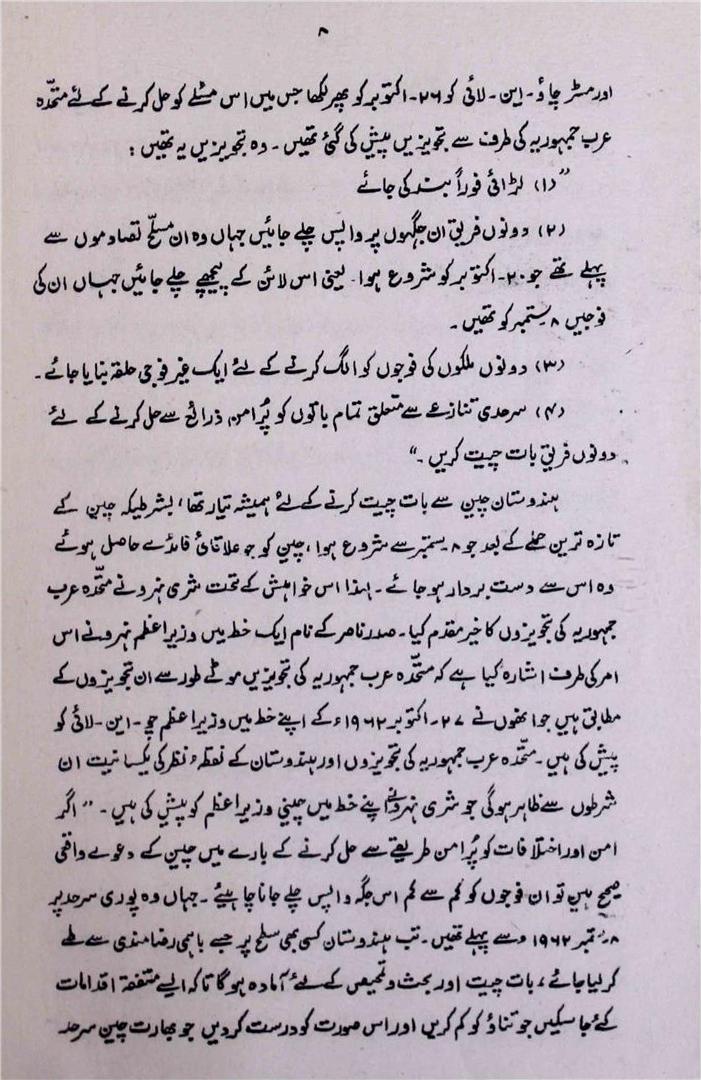 ۸
اور مسٹر چاؤ۔ این۔ لائی کو ۲۶۔ اکتوبر کو پھر لکھا جس میں اس مسئلے کو حل کرنے کے لئے متحّدہ
عرب جمہوریہ کی طرف سے تجویزیں پیش کی گئی تھیں۔ وہ تجویزیں یہ تھیں:
"(۱) لڑائی فوراً بند کی جائے
(۲) دونوں فریق ان جگہوں پر واپس چلے جائیں جہاں وہ ان مسلّح تصادموں سے
پہلے تھے جو ۲۰۔ اکتوبر کو شروع ہوا۔ یعنی اس لائن کے پیچھے چلے جائیں جہاں ان کی
فوجیں ۸ ستمبر کو تھیں۔
(۳) دونوں ملکوں کی فوجوں کو الگ کرنے کے لئے ایک غیر فوجی حلقہ بنایا جائے۔
(۴) سرحدی تنازعے سے متعلق تمام باتوں کو پُرامن ذرائع سے حل کرنے کے لئے
دونوں فریق بات چیت کریں۔"
ہندوستان چین سے بات چیت کرنے کے لئے ہمیشہ تیار تھا، بشرطیکہ چین کے
تازہ ترین حملے کے بعد جو ۸ ستمبر سے شروع ہوا، چین کو جو علاقائی فائدے حاصل ہوئے
وہ اس سے دست بردار ہو جائے۔ لہذا اس خواہش کے تحت شری نہرو نے متحّدہ عرب
جمہوریہ کی تجویزوں کا خیر مقدم کیا۔ صدر ناصر کے نام ایک خط میں وزیراعظم نہرو نے اس
امر کی طرف اشارہ کیا ہے کہ متحّدہ عرب جمہوریہ کی تجویزیں موٹے طور سے ان تجویزوں کے
مطابق ہیں جو انھوں نے ۲۷۔ اکتوبر ۱۹۶۲ء کے اپنے خط میں وزیراعظم چو۔ این۔ لائی کو
پیش کی ہیں۔ متحّدہ عرب جمہوریہ کی تجویزوں اور ہندوستان کے نقطۂ نظر کی یکسانیت ان
شرطوں سے ظاہر ہوگی جو شری نہرو نے اپنے خط میں چینی وزیراعظم کو پیش کی ہیں۔ "اگر
امن اور اختلافات کو پُرامن طریقے سے حل کرنے کے بارے میں چین کے دعوے واقعی
صحیح ہیں تو ان فوجوں کو کم سے کم اس جگہ واپس چلے جانا چاہیئے۔ جہاں وہ پوری سرحد پر
۸۔ ستمبر ۱۹۶۲ء سے پہلے تھیں۔ تب ہندوستان کسی بھی سطح پر جسے باہمی رضامندی سے طے
کر لیا جائے، بات چیت اور بحث و تمحیص کے لئے آمادہ ہوگا تاکہ ایسے متفقہ اقدامات
کئے جا سکیں جو تناؤ کو کم کریں اور اس صورت کو درست کر دیں جو بھارت چین سرحد